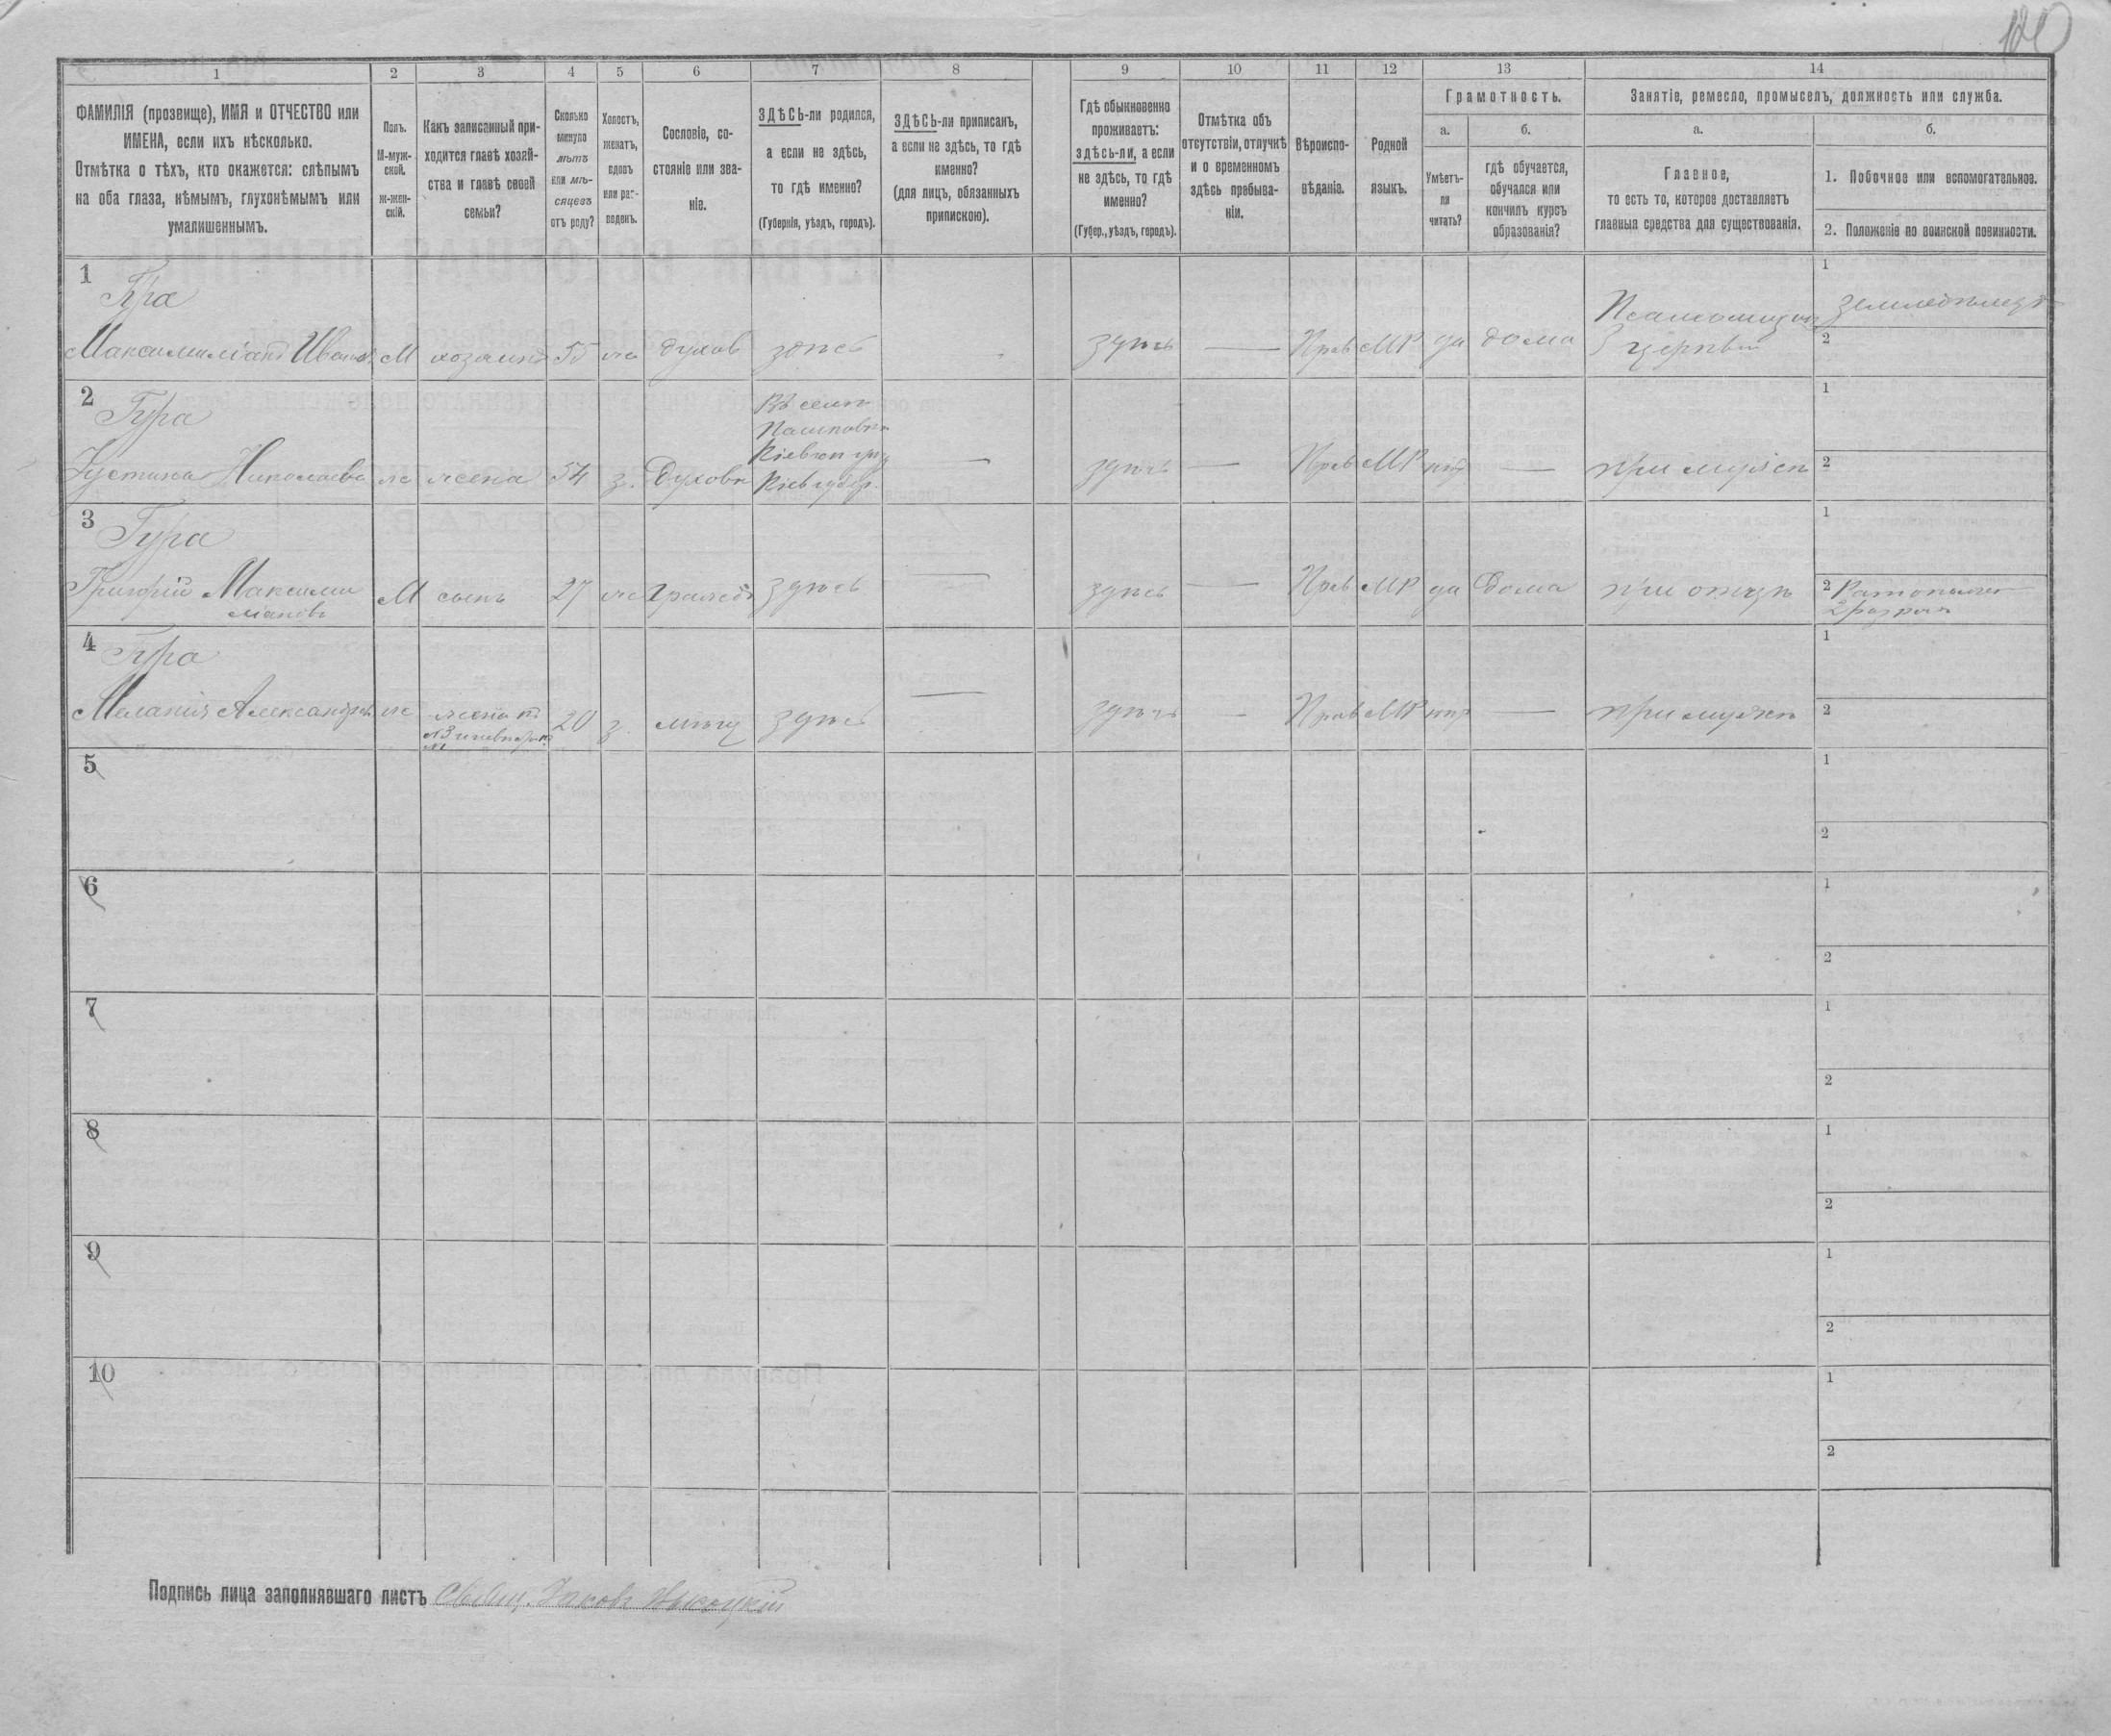 120
1 2 3 4 5 6 7 8 9 10 11 12 13 14
ФАМИЛІЯ (прозвище), ИМЯ и ОТЧЕСТВО или
ИМЕНА, если ихъ нѣсколько.
Отмѣтка о тѣхъ, кто окажется: слѣпымъ
на оба глаза, нѣмымъ, глухонѣмымъ или
умалишеннымъ.
Полъ.
М-муж-
ской.
ж-жен-
скій.
Какъ записанный при-
ходится главѣ хозяй-
ства и главѣ своей
семьи?
Сколько
минуло
лѣтъ
или мѣ-
сяцевъ
отъ роду?
Холостъ,
женатъ,
вдовъ
или раз-
веденъ.
Сословіе, со-
стояніе или зва-
ніе.
ЗДѢСЬ-ли родился,
а если не здѣсь,
то гдѣ именно?
(Губернія, уѣздъ, городъ).
ЗДѢСЬ-ли приписанъ,
а если не здѣсь, то гдѣ
именно?
(для лицъ, обязанныхъ
припискою).
Гдѣ обыкновенно
проживаетъ:
здѣсь-ли, а если
не здѣсь, то гдѣ
именно?
(Губер., уѣздъ, городъ).
Отмѣтка объ
отсутствіи, отлучкѣ
и о временномъ
здѣсь пребыва-
ніи.
Вѣроиспо-
вѣданіе.
Родной
языкъ.
Грамотность.
а.
Умѣетъ-
ли
читать?
б.
гдѣ обучается,
обучался или
кончилъ курсъ
образованія?
Занятіе, ремесло, промыселъ, должность или служба.
а.
Главное,
то есть то, которое доставляетъ
главныя средства для существованія.
б.
1. Побочное или вспомогательное.
2. Положеніе по воинской повинности.
1
Гура
Максимиліанъ Иванов М хозяинъ 55 ж духов здѣсь здѣсь — Прав МР да дома Псаломщик
церкви
1 земледѣлецъ
2
2
Гура
Іустина Николаева ж жена 54 з. Духовн
Въ селѣ
Пашковкѣ
Кіевск уѣз
Кіев губер.
— здѣсь — Прав МР нѣт — при мужѣ
1
2
3
Гура
Григорій Максими
ліановъ
М сынъ 27 ж гражд здѣсь — здѣсь — Прав МР да Дома при отцѣ
1
2 Ратополчен
2 разряд
4
Гура
Меланія Александров ж жена
20 з. мѣщ здѣсь — здѣсь — Прав МР — при мужѣ
1
2
5 1
2
6 1
2
7 1
2
8 1
2
9 1
2
10 1
2
Подпись лица заполнявшаго листъ Яковъ